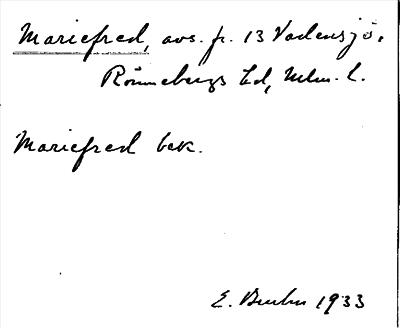 Mariefred, avs. fr. 13 Vadensjö,
Rönnebergs hd, Mlm. l.
Mariefred bek.
E. 1933